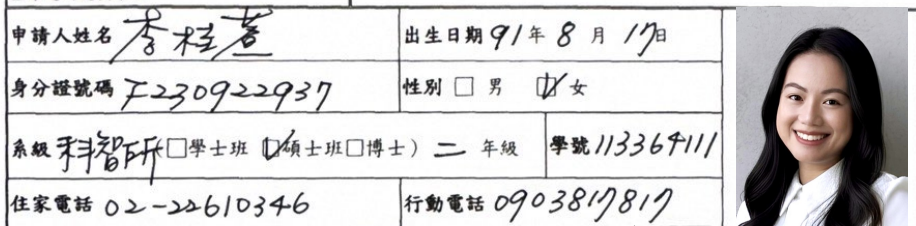 申請人姓名 李桂萱 出生日期 91年 8 月 17日
身分證號碼 F230922937 性別 □ 男 ☑ 女
系級 科智所 □學士班 ☑碩士班□博士) 二 年級 學號 113364111
住家電話 02-22610346 行動電話 0903817817